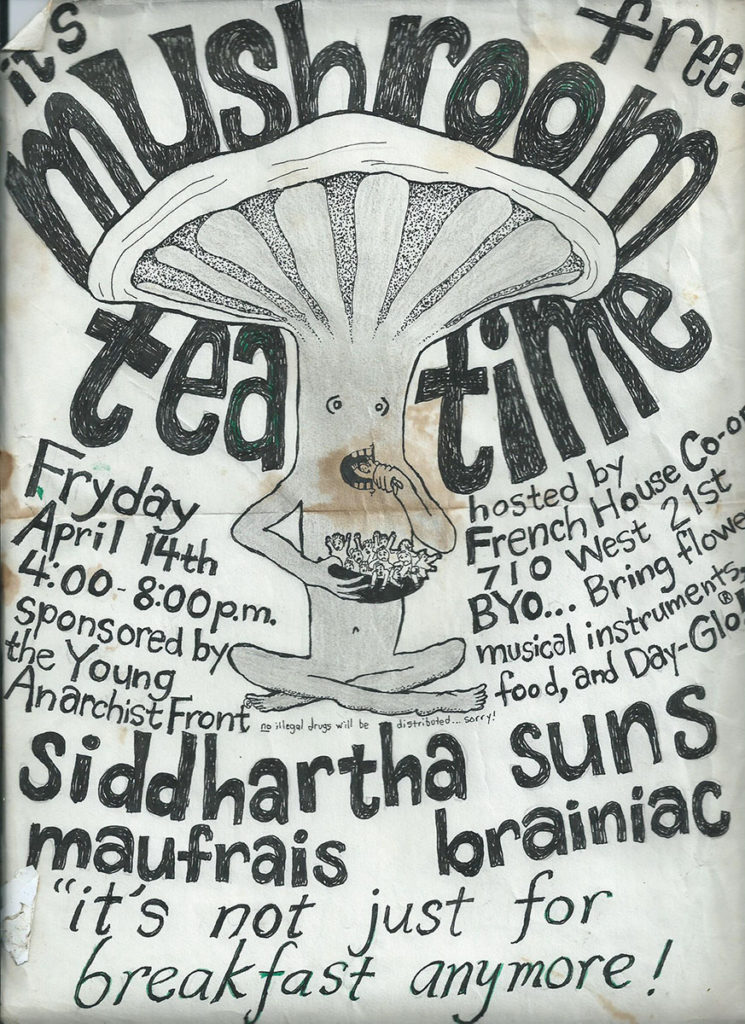 it's
free!
mushroom
tea time
Fryday
April 14th
4:00-8:00p.m.
sponsored by
the Young
Anarchist Front
hosted by
French House Co-op
710 West 21st
BYO... Bring
musical instruments,
food, and Day-Glo®
no illegal drugs will be distributed... sorry!
siddhartha suns
maufrais brainiac
"it's not just for
breakfast anymore!